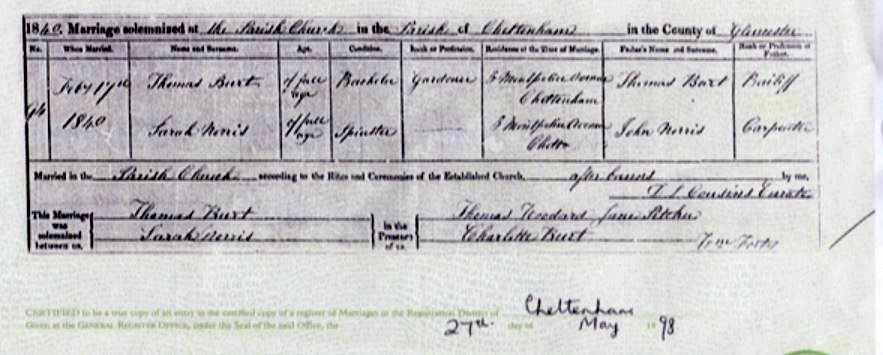 1840. Marriage solemnized at the Parish Church in the Parish of Cheltenham in the County of Gloucester
No. When Married. Name and Surname. Age. Condition. Rank or Profession. Residence at the Time of Marriage. Father's Name and Surname. Rank or Profession of Father.
Feby 17th Thomas Burt of full age Bachelor Gardener 3 Montpelier Avenue Cheltenham Thomas Burt Bailiff
1840 Sarah Norris of full age Spinster 3 Montpelier Avenue Chelt John Norris Carpenter
Married in the Parish Church according to the Rites and Ceremonies of the Established Church, after banns by me,
Cousins Curate
This Marriage was solemnized between us, Thomas Burt Sarah Norris in the Presence of us, Thomas Woodard Jane Pitcher Charlotte Burt
CERTIFIED to be a true copy of an entry in the certified copy of a register of Marriages in the Registration District of Cheltenham
Given at the GENERAL REGISTER OFFICE, under the Seal of the said Office, the 27th day of May 1998